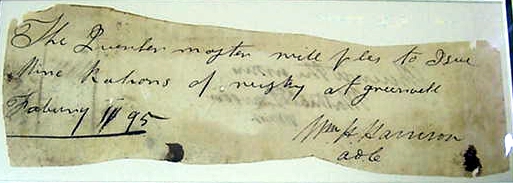 The Quarter master will ples to Isue
Nine Rations of wisky at greenvell
Wm H Harrison
adc